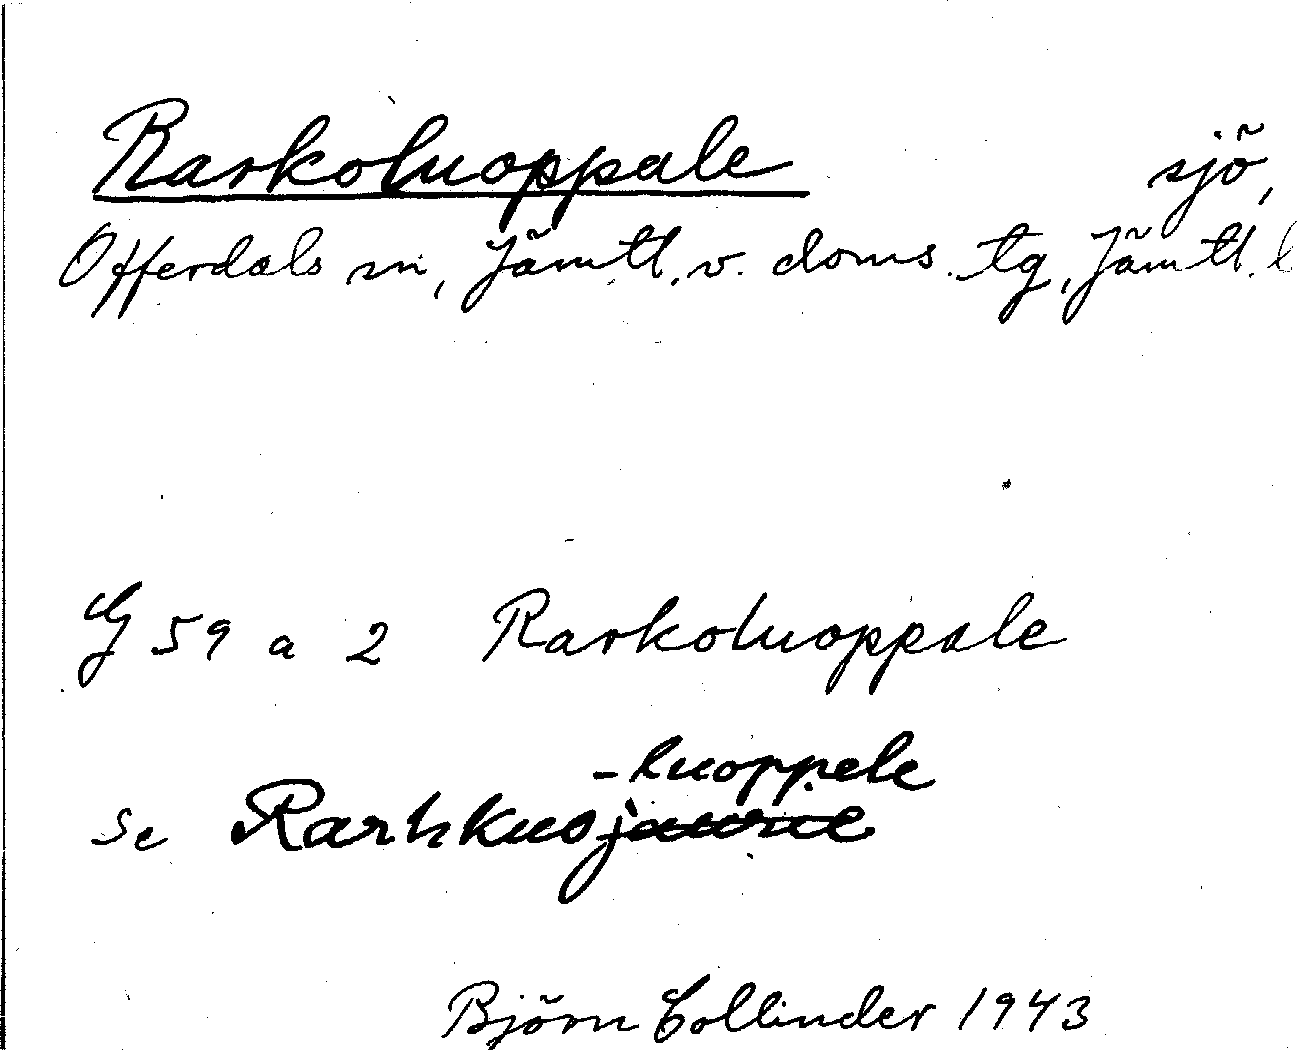 Rarkoluoppale sjö,
Offerdals sn, Jämtl. v. doms. tg, Jämtl. l
G 59 a 2 Rarkoluoppale
-luoppele
Se Rarhkuojaurie
Björn Collinder 1943